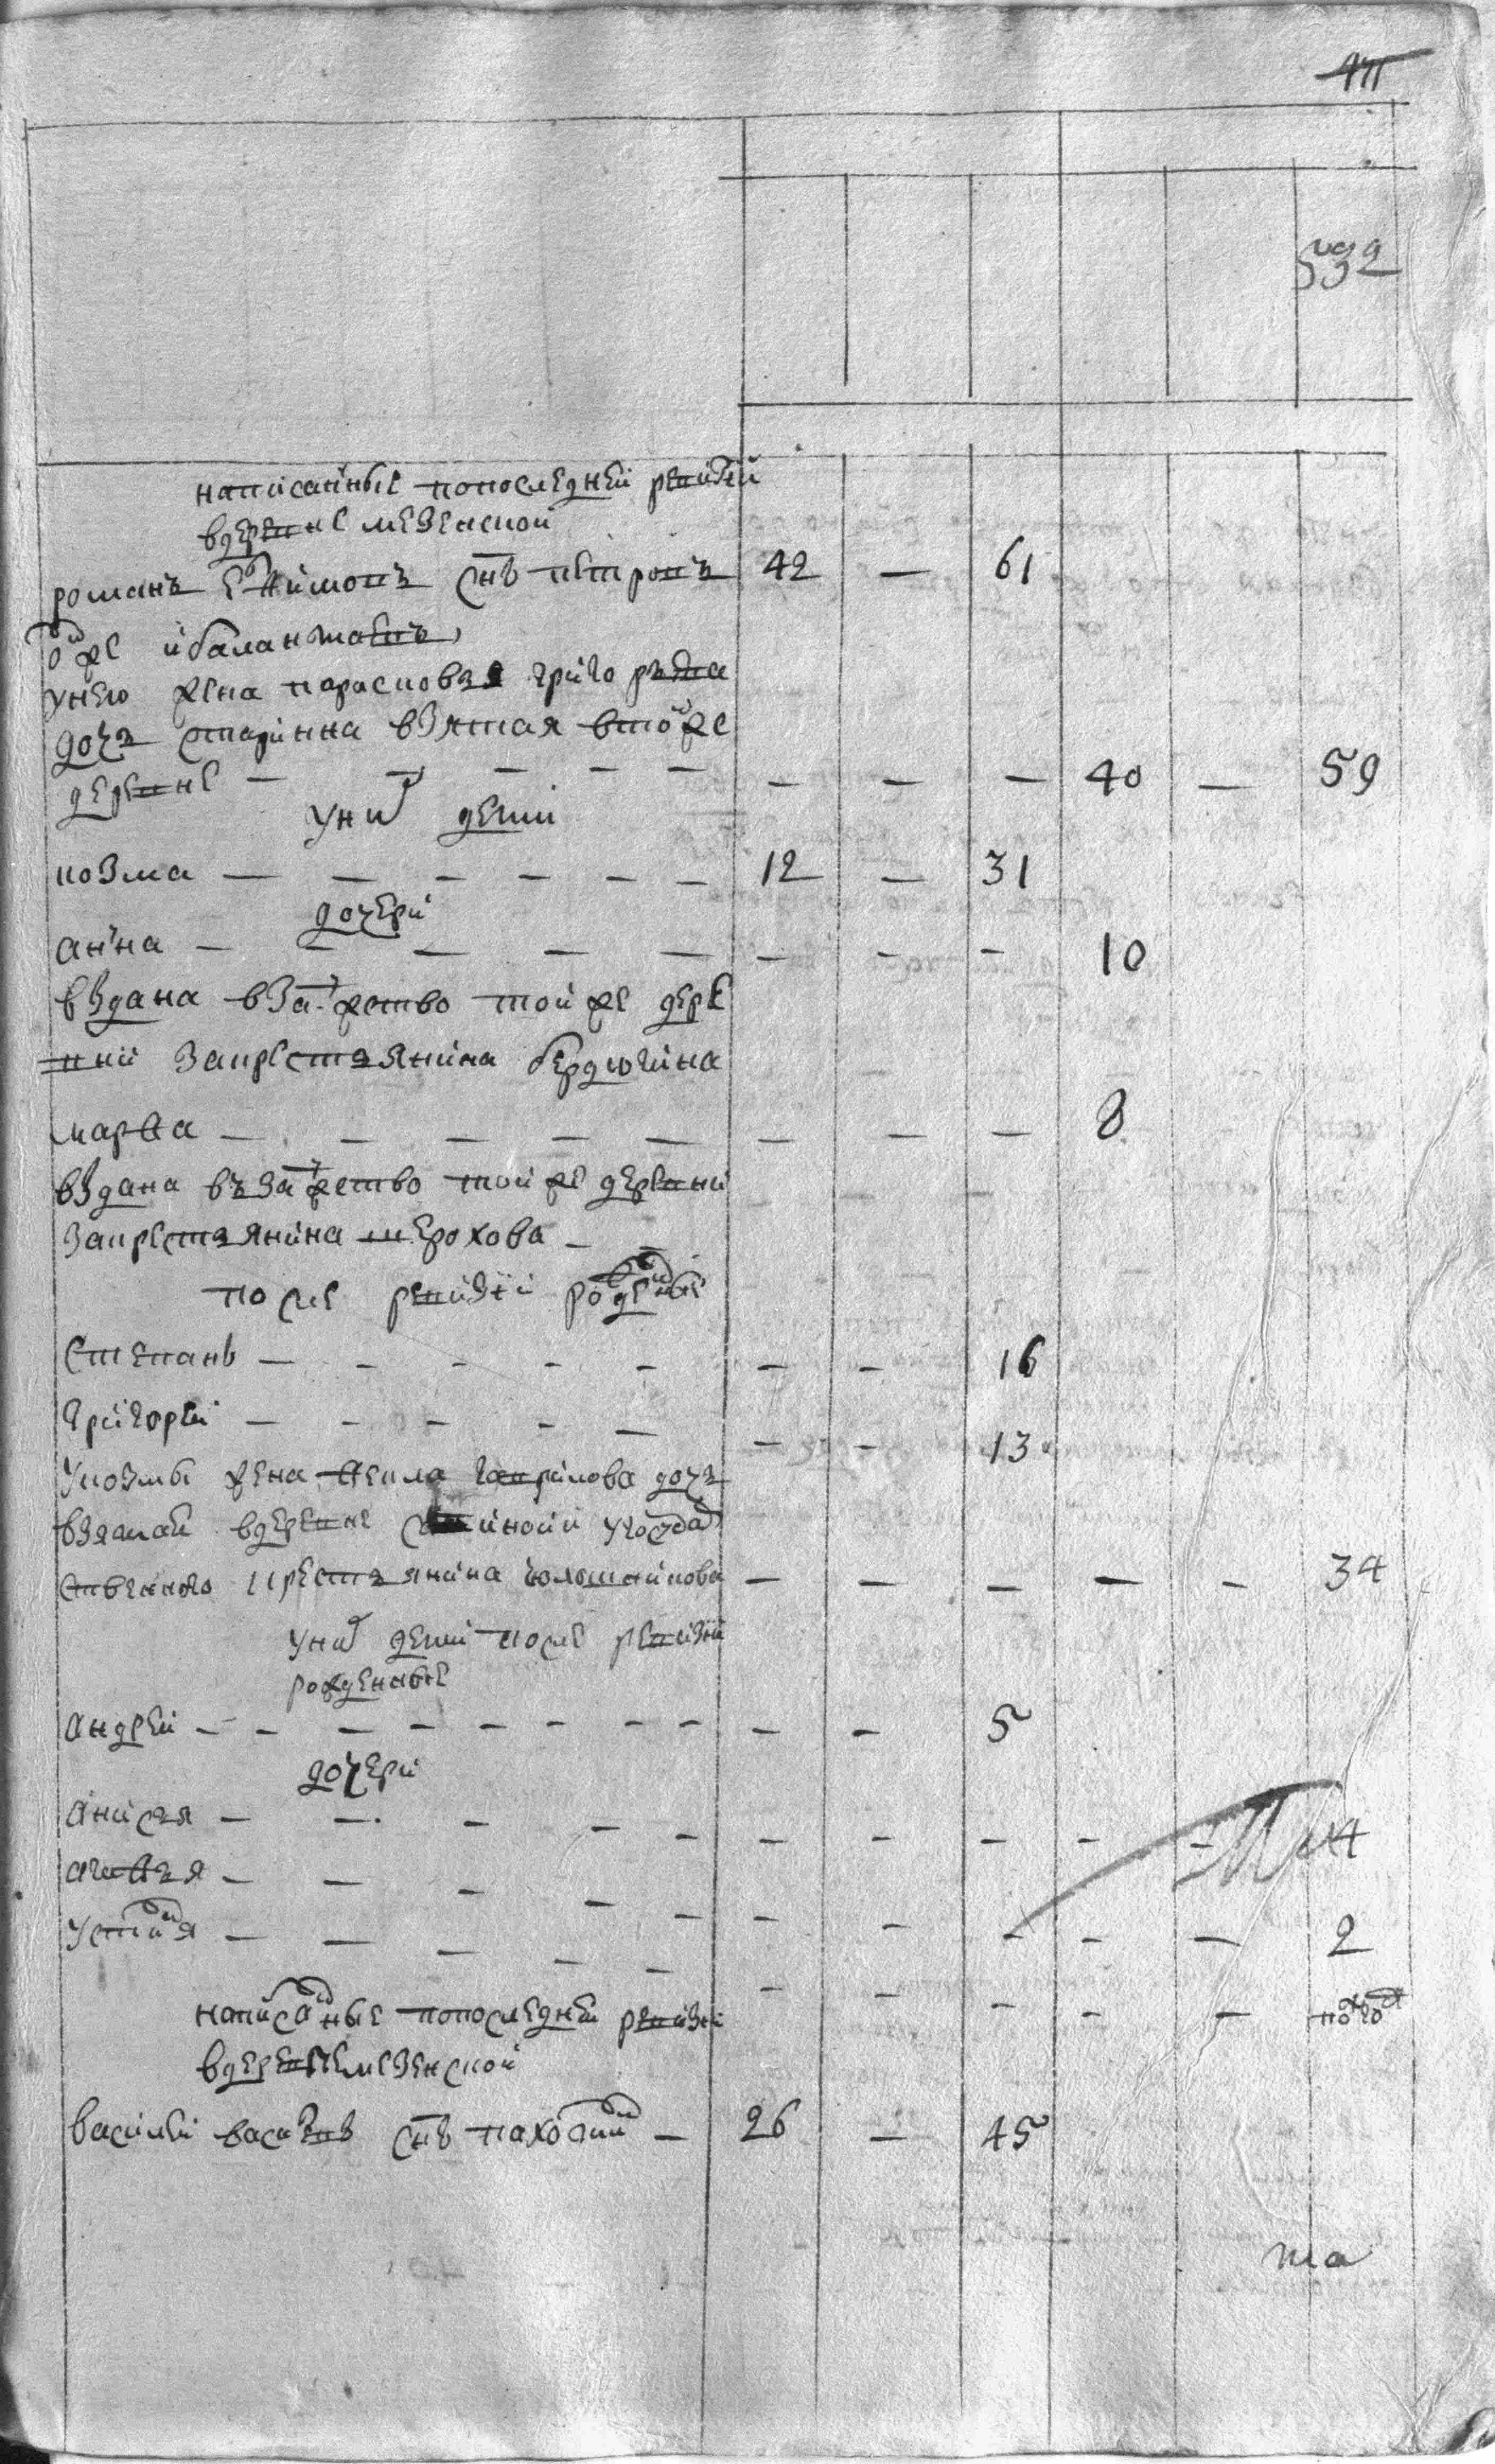 532
написанные попоследней ревизии
вдеревне мезенской
романъ Ефимовъ снъ петровъ 42 — 61
онже ибаланжавъ
унего жена парасковья григорьева
дочь старинна взятая втойже
деревне — — — — — — — — 40 — 59
уних дети
козма — — — — — — 12 — 31
дочери
анна — — — — — — — — 10
вздана взамужество тойже дере
вни закрестьянина бердюгина
марфа — — — — — — — — 8
вздана въ замужество тойже деревни
закрестьянина шерохова — —
после ревизии рожденые
Степанъ — — — — — — — 16
Григорей — — — — — — — 13
укозмы жена фекла гаврилова дочь
взятая вдеревне инской угосуда
ственного крестьянина — — — — — 34
уних дети после ревизии
рожденные
андрей — — — — — — — — — — 5
дочери
анисья — — — — — — — — — — 14
агафья — — — — — — — — — — 2
устинья — — — — — — — — — — полгода
написанные попоследней ревизии
вдеревне мезенской
василей васильевъ снъ — 26 — 45
та